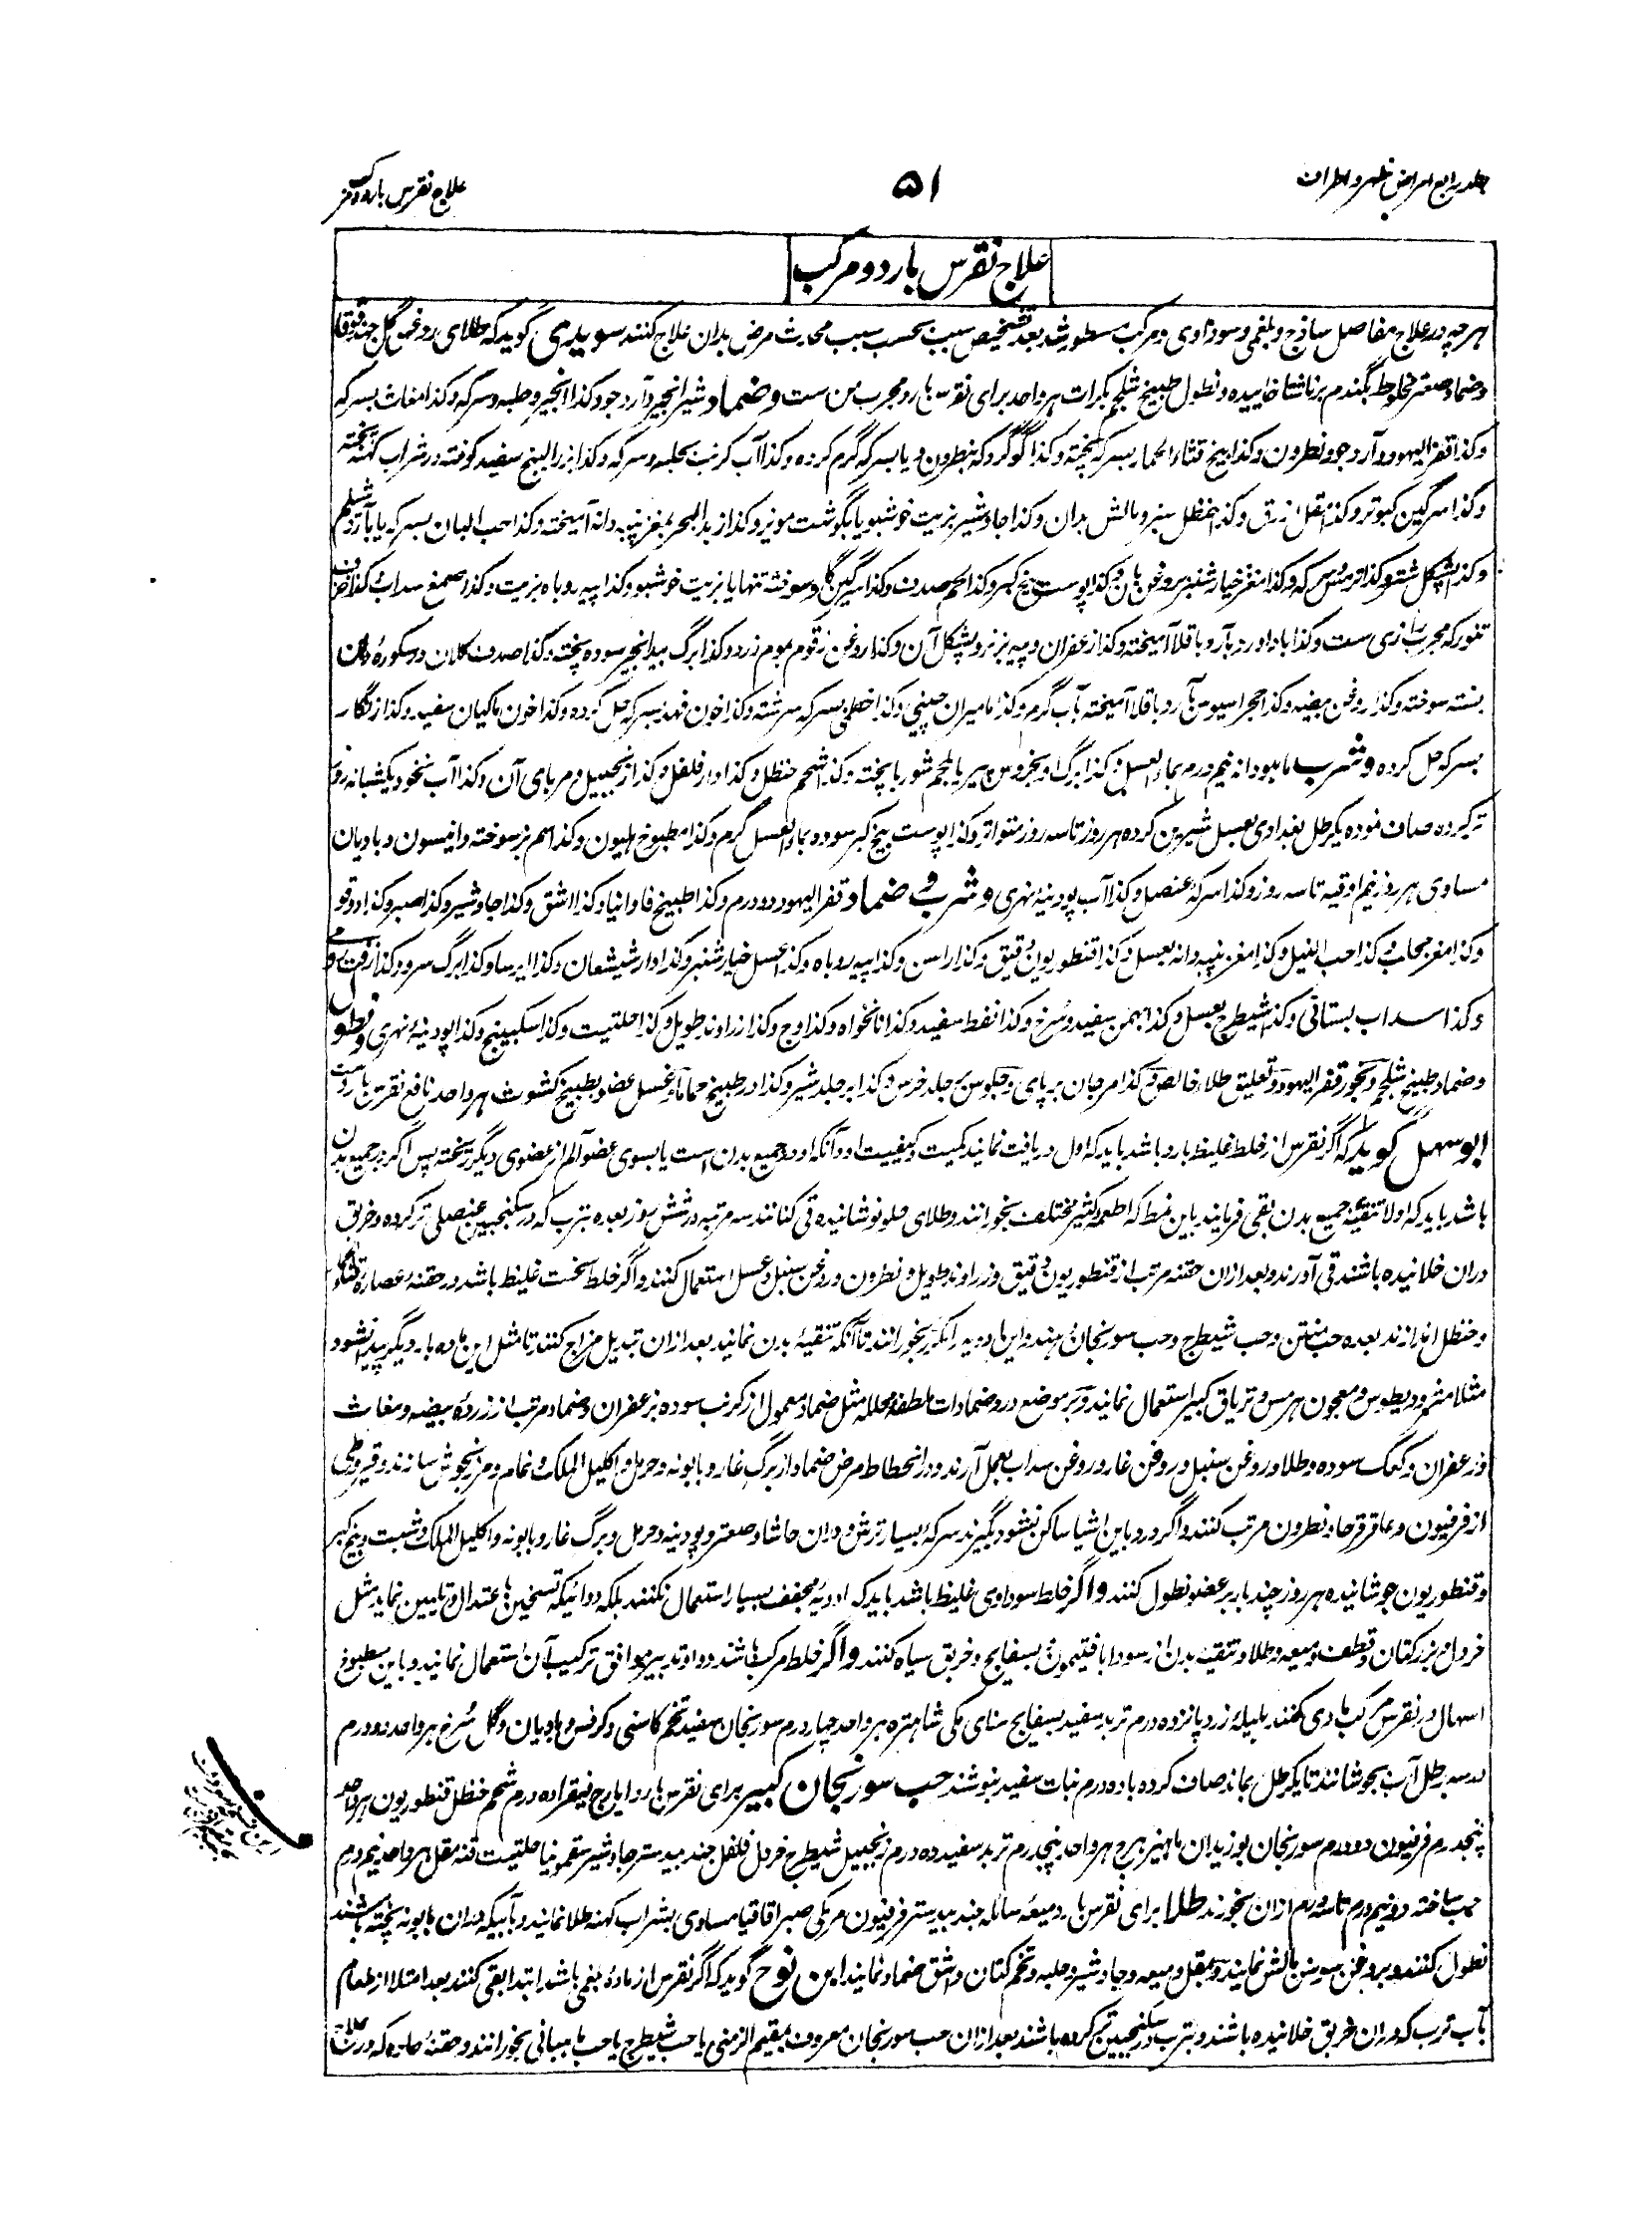 جلد رابع امراض ظهر و اطراف
۵۱
علاج نقرس بارد و مرکب
علاج نقرس بارد و مرکب
هرچه در علاج مفاصل ساذج و بلغمی و سوداوی و مرکب مسطور شد بعد تشخیص سبب بحسب سبب محدث مرض بدان علاج کنند سویدی گوید که طلای روغن گل
و ضماد صعتر مخلوط بگندم برناشتا خاییده و نطول طبیخ شلجم بکرات هر واحد برای نقرس بارد مجرب من ست و ضماد شیر انجیر و آرد جو و کذا انجیر و حلبه و سرکه و کذا مغاث بسرکه
و کذا قفر الیهود و آرد جو و نطرون و کذا بیخ قثاء الحمار بسرکه پخته و کذا گوگرد که بنطرون و یا بسرکه گرم کرده و کذا آب کرنب بحلبه و سرکه و کذا بزر البنج سفید کوفته در شراب کهنه پخته
و کذا سرگین کبوتر و کذا مقل ازرق و کذا حنظل سبز و مالش بدان و کذا جاوشیر بزیت خوشبو یا بگوشت مویز و کذا زبد البحر بمغز پنبه دانه آمیخته و کذا حب البان بسرکه یا بآرد شیلم
و کذا پشکل شتر و کذا ترمس بسرکه و کذا مغز خیار شنبر بروغن بان و کذا پوست بیخ کبر و کذا لحم صدف و کذا سرگین گاو سوخته تنها یا بزیت خوشبو و کذا پیه روباه بزیت و کذا صمغ سداب و کذا
تنور که مجرب رازی ست و کذا باداورد بآرد باقلا آمیخته و کذا زعفران و پیه بز نر و پشکل آن و کذا روغن زقوم بموم زرد و کذا برگ بیدانجیر سوده پخته و کذا صدف کلان در سکوره دهان
بسته سوخته و کذا روغن بیضه و کذا حجر اسیوس بآرد باقلا آمیخته بآب گرم و کذا مامیران چینی و کذا خطمی بسرکه سرشته و کذا خون فهد بسرکه حل کرده و کذا خون ماکیان سفید و کذا زنگار
بسرکه حل کرده و شرب ماهودانه نیم درم بماء العسل و کذا برگ او بخروس پیر یا بلحم شوربا پخته و کذا شحم حنظل و کذا دار فلفل و کذا زنجبیل و مربای آن و کذا آب نخود یکشبانه روز
تر کرده صاف نموده یکرطل بغدادی بعسل شیرین کرده هر روز تا سه روز متواتر و کذا پوست بیخ کبر سوده بماء العسل گرم و کذا مطبوخ هلیون و کذا سم بز سوخته و انیسون و بادیان
مساوی هر روز نیم اوقیه تا سه روز و کذا سرکه عنصل و کذا آب پودینه نهری و شرب و ضماد قفر الیهود دو درم و کذا طبیخ فاوانیا و کذا اشق و کذا جاوشیر و کذا صبر و کذا دوقو
و کذا مغز محلب و کذا حب النیل و کذا مغز پنبه دانه بعسل و کذا قنطوریون دقیق و کذا راسن و کذا پیه روباه و کذا عسل خیار شنبر و کذا دارشیشعان و کذا ایرسا و کذا برگ سرو و کذا زفت رومی
و کذا سداب بستانی و کذا شیطرج بعسل و کذا بهمن سفید و سرخ و کذا نفط سفید و کذا نانخواه و کذا وج و کذا زراوند طویل و کذا حلتیت و کذا سکبینج و کذا پودینه نهری و نطول
و ضماد طبیخ شلجم و بخور قفر الیهود و تعلیق طلاء خالص و کذا مرجان بر پای و جلوس بر جلد خرس و کذا بر جلد شیر و کذا در طبیخ حماما و غسل عضو بطبیخ کشوث هر واحد نافع نقرس بارد ست
ابوسهل گوید که اگر نقرس از خلط غلیظ بارد باشد باید که اول دریافت نمایند کمیت و کیفیت او و آنکه او در جمیع بدن است یا بسوی عضو آلم از عضوی دیگر ریخته پس اگر در جمیع بدن
باشد باید که اولا تنقیه جمیع بدن بقی فرمایند باین نمط که اطعمه کثیر مختلف بخورانند و طلای حلو نوشانیده قی کنانند سه مرتبه در شش روز بعده بترب که در سکنجبین عنصلی تر کرده و خربق
دران خلانیده باشند قی آورند و بعد ازان حقنه مرتب از قنطوریون دقیق و زراوند طویل و نطرون و روغن سنبل و عسل استعمال کنند و اگر خلط سخت غلیظ باشد در حقنه عصاره قثاء الحمار
و حنظل اندازند بعده حب منتن و حب شیطرج و حب سورنجان بدهند و این ادویه را مکرر بخورانند تا آنکه تنقیه بدن نمایند بعد ازان تبدیل مزاج کنند تا مثل این ماده بار دیگر پیدا نشود
مثلا مثرودیطوس و معجون هرمس و تریاق کبیر استعمال نمایند و بر موضع درد ضمادات ملطفه محلله مثل ضماد معمول از کرنب سوده بزعفران و ضماد مرتب از زرده بیضه و مغاث
و زعفران و کعک سوده و طلا و روغن سنبل و روغن غار و روغن سداب بعمل آرند و در انحطاط مرض ضماد از برگ غار و بابونه و حرمل و اکلیل الملک و نمام و مرزنجوش سازند و قیروطی
از فرفیون و عاقرقرحا و نطرون مرتب کنند و اگر درد باین اشیا ساکن نشود بگیرند سرکه بسیار ترش و دران حاشا و صعتر و پودینه و حرمل و برگ غار و بابونه و اکلیل الملک و شبت و بیخ کبر
و قنطوریون جوشانیده هر روز چند بار بر عضو نطول کنند و اگر خلط سوداوی غلیظ باشد باید که ادویه مجفف بسیار استعمال نکنند بلکه دوائیکه تسخین باعتدال و تلیین نماید مثل
خردل و بزر کتان و قطف و میعه و طلا و تنقیه بدن از سودا بافتیمون و بسفایج و خربق سیاه کنند و اگر خلط مرکب باشد دوا و تدبیر موافق ترکیب آن استعمال نمایند و باین مطبوخ
اسهال در نقرس مرکب مادی کنند هلیله زرد پانزده درم تربد سفید بسفایج سنای مکی شاهتره هر واحد چهار درم سورنجان سفید تخم کاسنی و کرفس و بادیان و گل سرخ هر واحد دو درم
در سه رطل آب بجوشانند تا یکرطل بماند صاف کرده با ده درم نبات سفید بنوشند حب سورنجان کبیر برای نقرس بارد ایارج فیقرا ده درم شحم حنظل قنطوریون هر واحد
پنجدرم فرفیون دو درم سورنجان بوزیدان ماهیزهرج هر واحد پنجدرم تربد سفید ده درم زنجبیل شیطرج خردل فلفل جندبیدستر جاوشیر سقمونیا حلتیت قنه مقل هر واحد نیم درم
حب ساخته دو نیم درم تا سه درم ازان بخورند طلا برای نقرس بارد میعه سائله جندبیدستر فرفیون مر مکی صبر اقاقیا مساوی بشراب کهنه طلا نمایند و بآبیکه دران بابونه پخته باشند
نطول کنند و بروغن سوسن مالش نمایند و بمقل و میعه و جاوشیر و حلبه و تخم کتان و اشق ضماد نمایند ابن نوح گوید که اگر نقرس از ماده بلغمی باشد ابتدا بقی کنند بعد امتلا از طعام
بآب ترب که دران خربق خلانیده باشند و بترب در سکنجبین تر کرده باشند بعد ازان حب سورنجان معروف بمقیم الزمنی یا حب شیطرج یا حب ماهیانی بخورانند و حقنه حاره که در